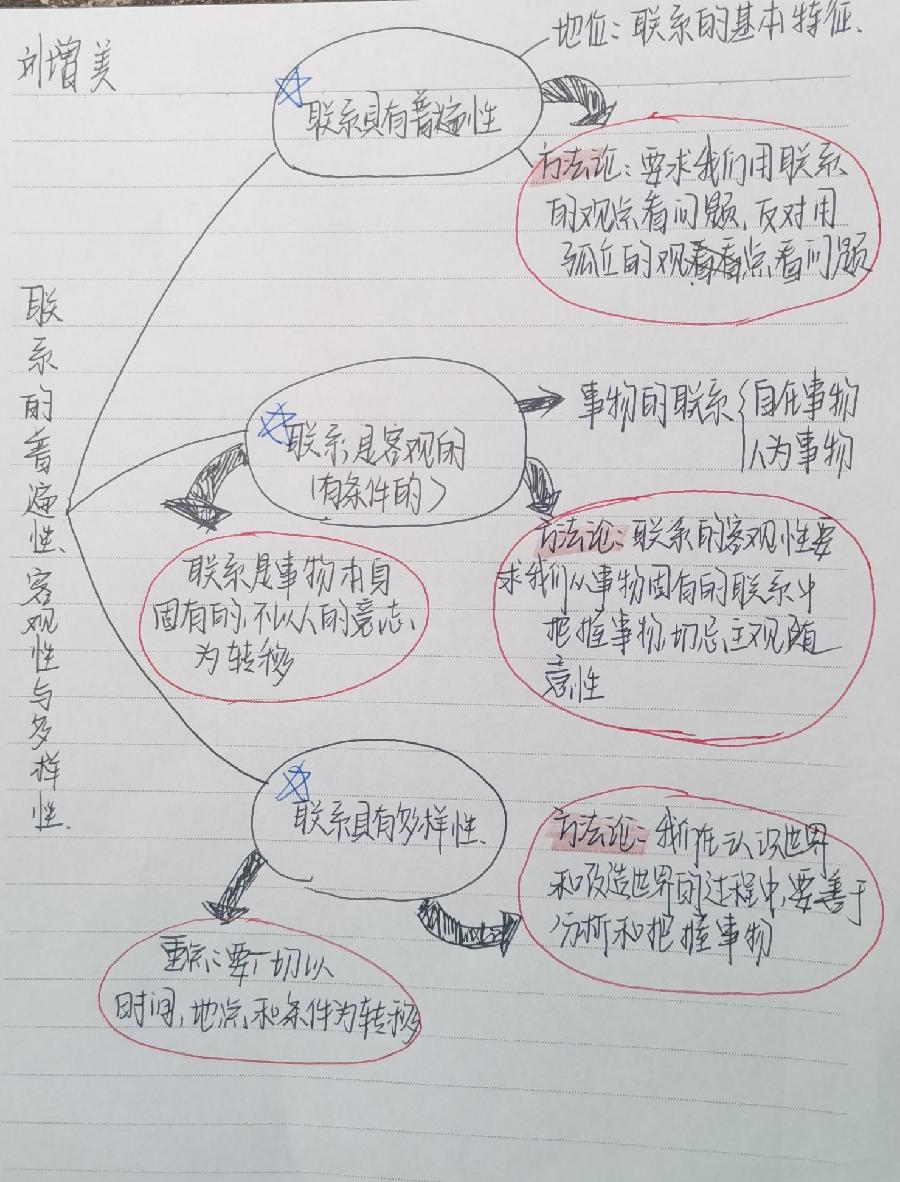 刘增美
地位：联系的基本特征.
联系具有普遍性
方法论：要求我们用联系
的观点看问题，反对用
孤立的观点看问题
联系的普遍性、客观性与多样性.
联系是客观的
（有条件的）
事物的联系
自在事物
人为事物
联系是事物本身
固有的,不以人的意志
为转移
方法论：联系的客观性要
求我们从事物固有的联系中
把握事物,切忌主观随
意性
联系具有多样性
方法论：我们在认识世界
和改造世界的过程中,要善于
分析和把握事物
重点：要一切以
时间,地点,和条件为转移